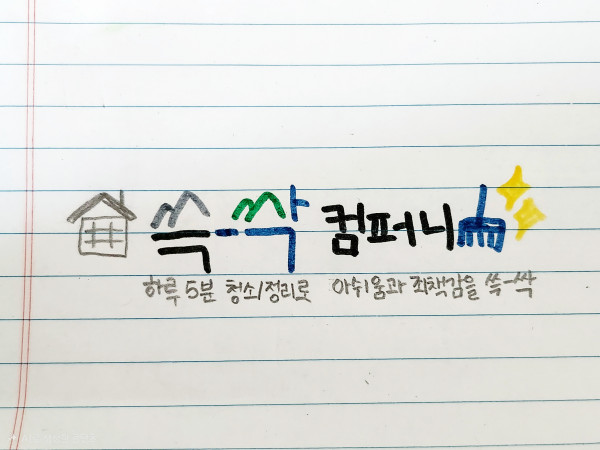 쓱-싹 컴퍼니
하루 5분 청소/정리로 아쉬움과 죄책감을 쓱-싹